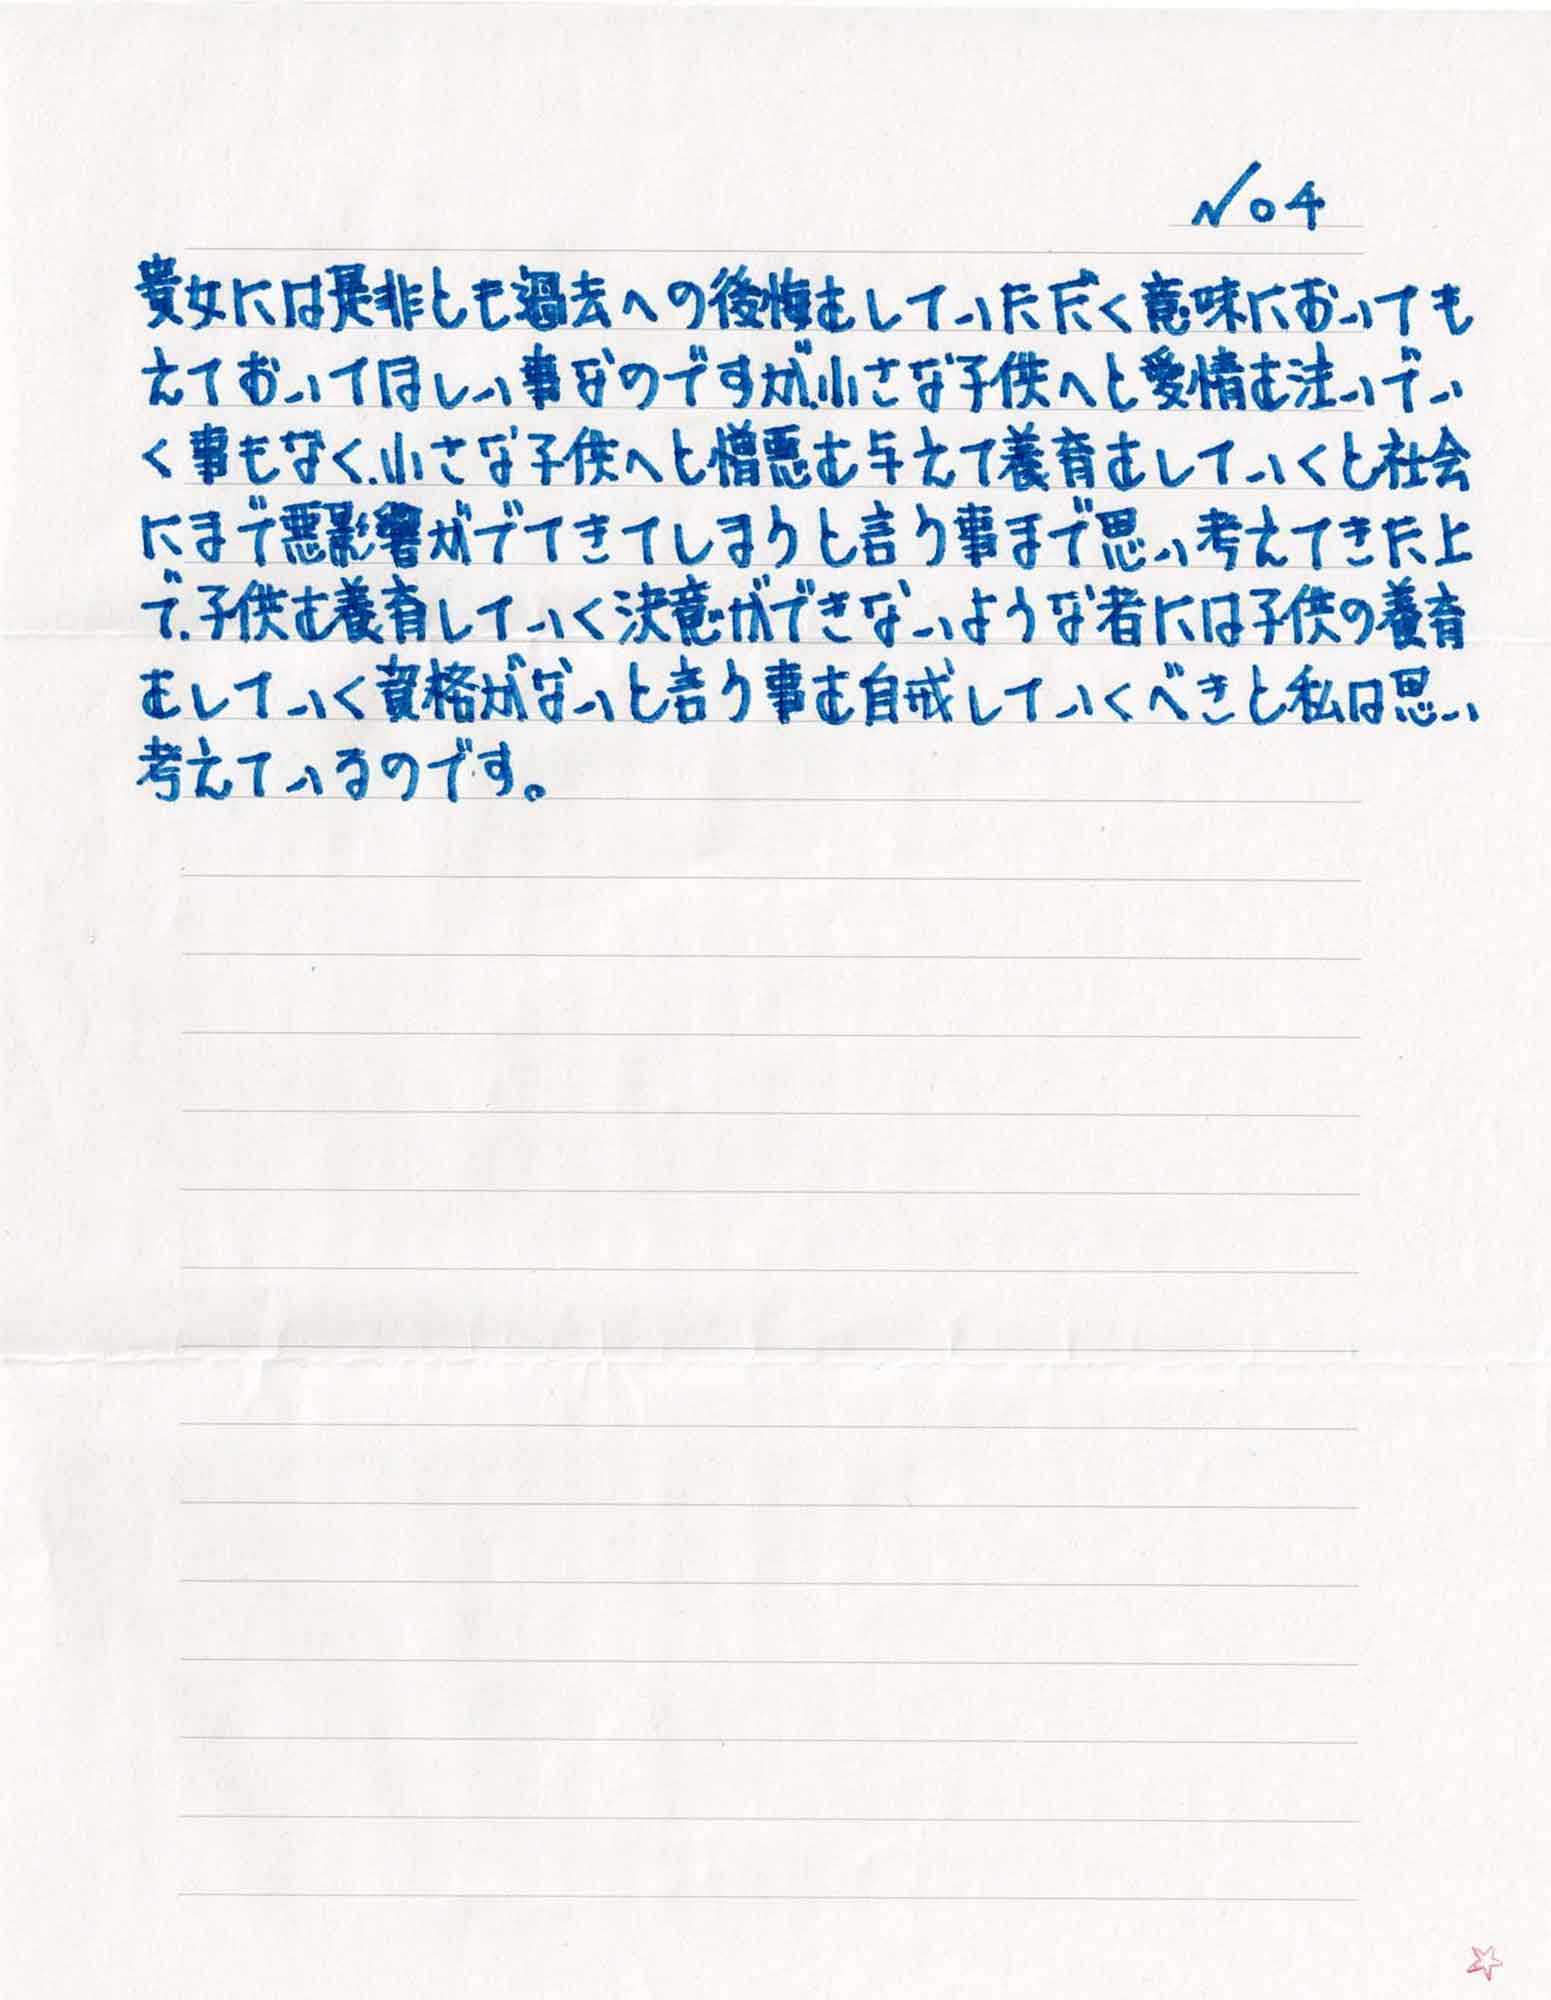 No4
貴女には是非とも過去への後悔をしていただく意味においても
えておいてほしい事なのですが、小さな子供へと愛情を注いでい
く事もなく、小さな子供へと憎悪を与えて養育をしていくと社会
にまで悪影響がでてきてしまうと言う事まで思い考えてきた上
で、子供を養育していく決意ができないような者には子供の養育
をしていく資格がないと言う事を自戒していくべきと私は思い
考えているのです。